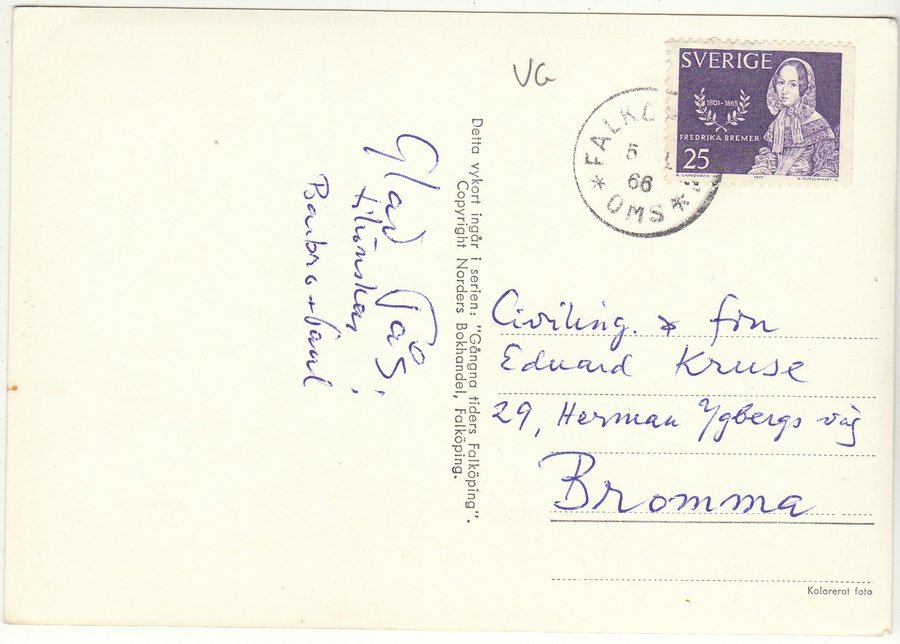 VG
SVERIGE
1801-1865
FREDRIKA BREMER
25
FALKÖ
5
66
OMS
Glad Påsk!
tillönskar
Barbro + Paul
Detta vykort ingår i serien: "Gångna tiders Falköping".
Copyright Norders Bokhandel, Falköping.
Civiling. & fru
Eduard Kruse
29, Herman Ygbergs väg
Bromma
Kolorerat foto